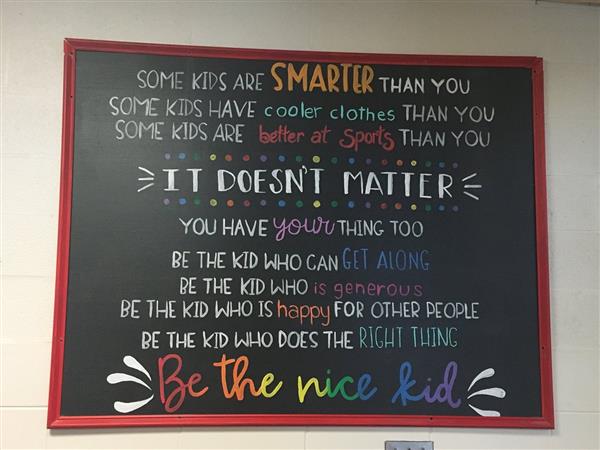 SOME KIDS ARE SMARTER THAN YOU
SOME KIDS HAVE cooler clothes THAN YOU
SOME KIDS ARE better at Sports THAN YOU
IT DOESN'T MATTER
YOU HAVE your THING TOO
BE THE KID WHO CAN GET ALONG
BE THE KID WHO is generous
BE THE KID WHO IS happy FOR OTHER PEOPLE
BE THE KID WHO DOES THE RIGHT THING
Be the nice kid